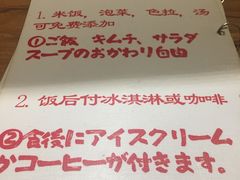 1. 米饭，泡菜，色拉，汤
可免费添加
①ご飯 キムチ、サラダ
スープのおかわり自由
2. 饭后付冰淇淋或咖啡
②食後にアイスクリーム
かコーヒーが付きます。